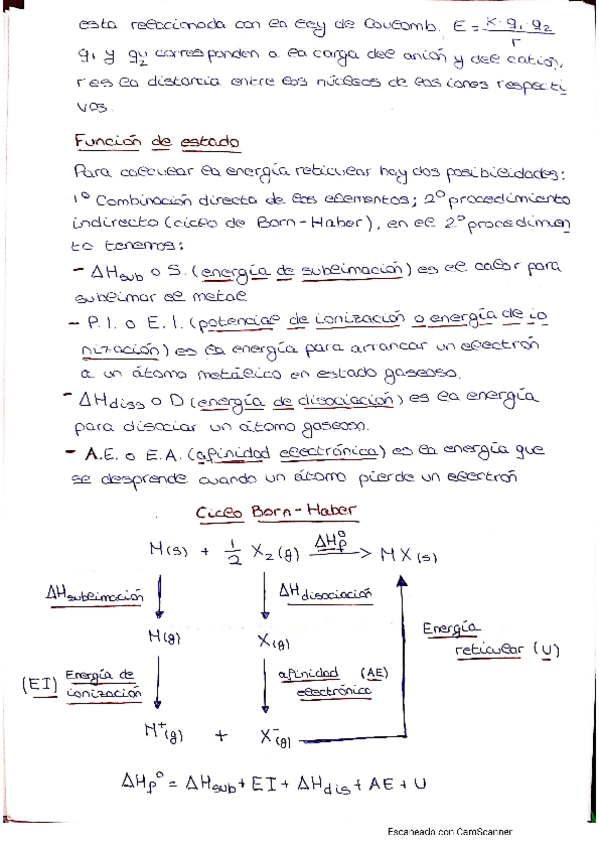 esta relacionada con la ley de Coulomb. E = K·q1·q2 / r
q1 y q2 corresponden a la carga del anión y del catión,
r es la distancia entre los núcleos de los iones respecti
vos.
Función de estado
Para calcular la energía reticular hay dos posibilidades:
1º Combinación directa de los elementos; 2º procedimiento
indirecto (ciclo de Born-Haber), en el 2º procedimien
to tenemos:
- ΔHsub o S. (energía de sublimación) es el calor para
sublimar el metal
- P.I. o E.I. (potencial de ionización o energía de io
nización) es la energía para arrancar un electrón
a un átomo metálico en estado gaseoso.
- ΔHdiss o D (energía de disociación) es la energía
para disociar un átomo gaseoso.
- A.E. o E.A. (afinidad electrónica) es la energía que
se desprende cuando un átomo pierde un electrón
Ciclo Born-Haber
M(s) + 1/2 X2(g) ΔHfº -> MX(s)
ΔHsublimación ΔHdisociación
M(g) X(g)
Energía reticular (U)
(EI) Energía de ionización afinidad (AE) electrónica
M+(g) + X-(g)
ΔHfº = ΔHsub + EI + ΔHdis + AE + U
Escaneado con CamScanner